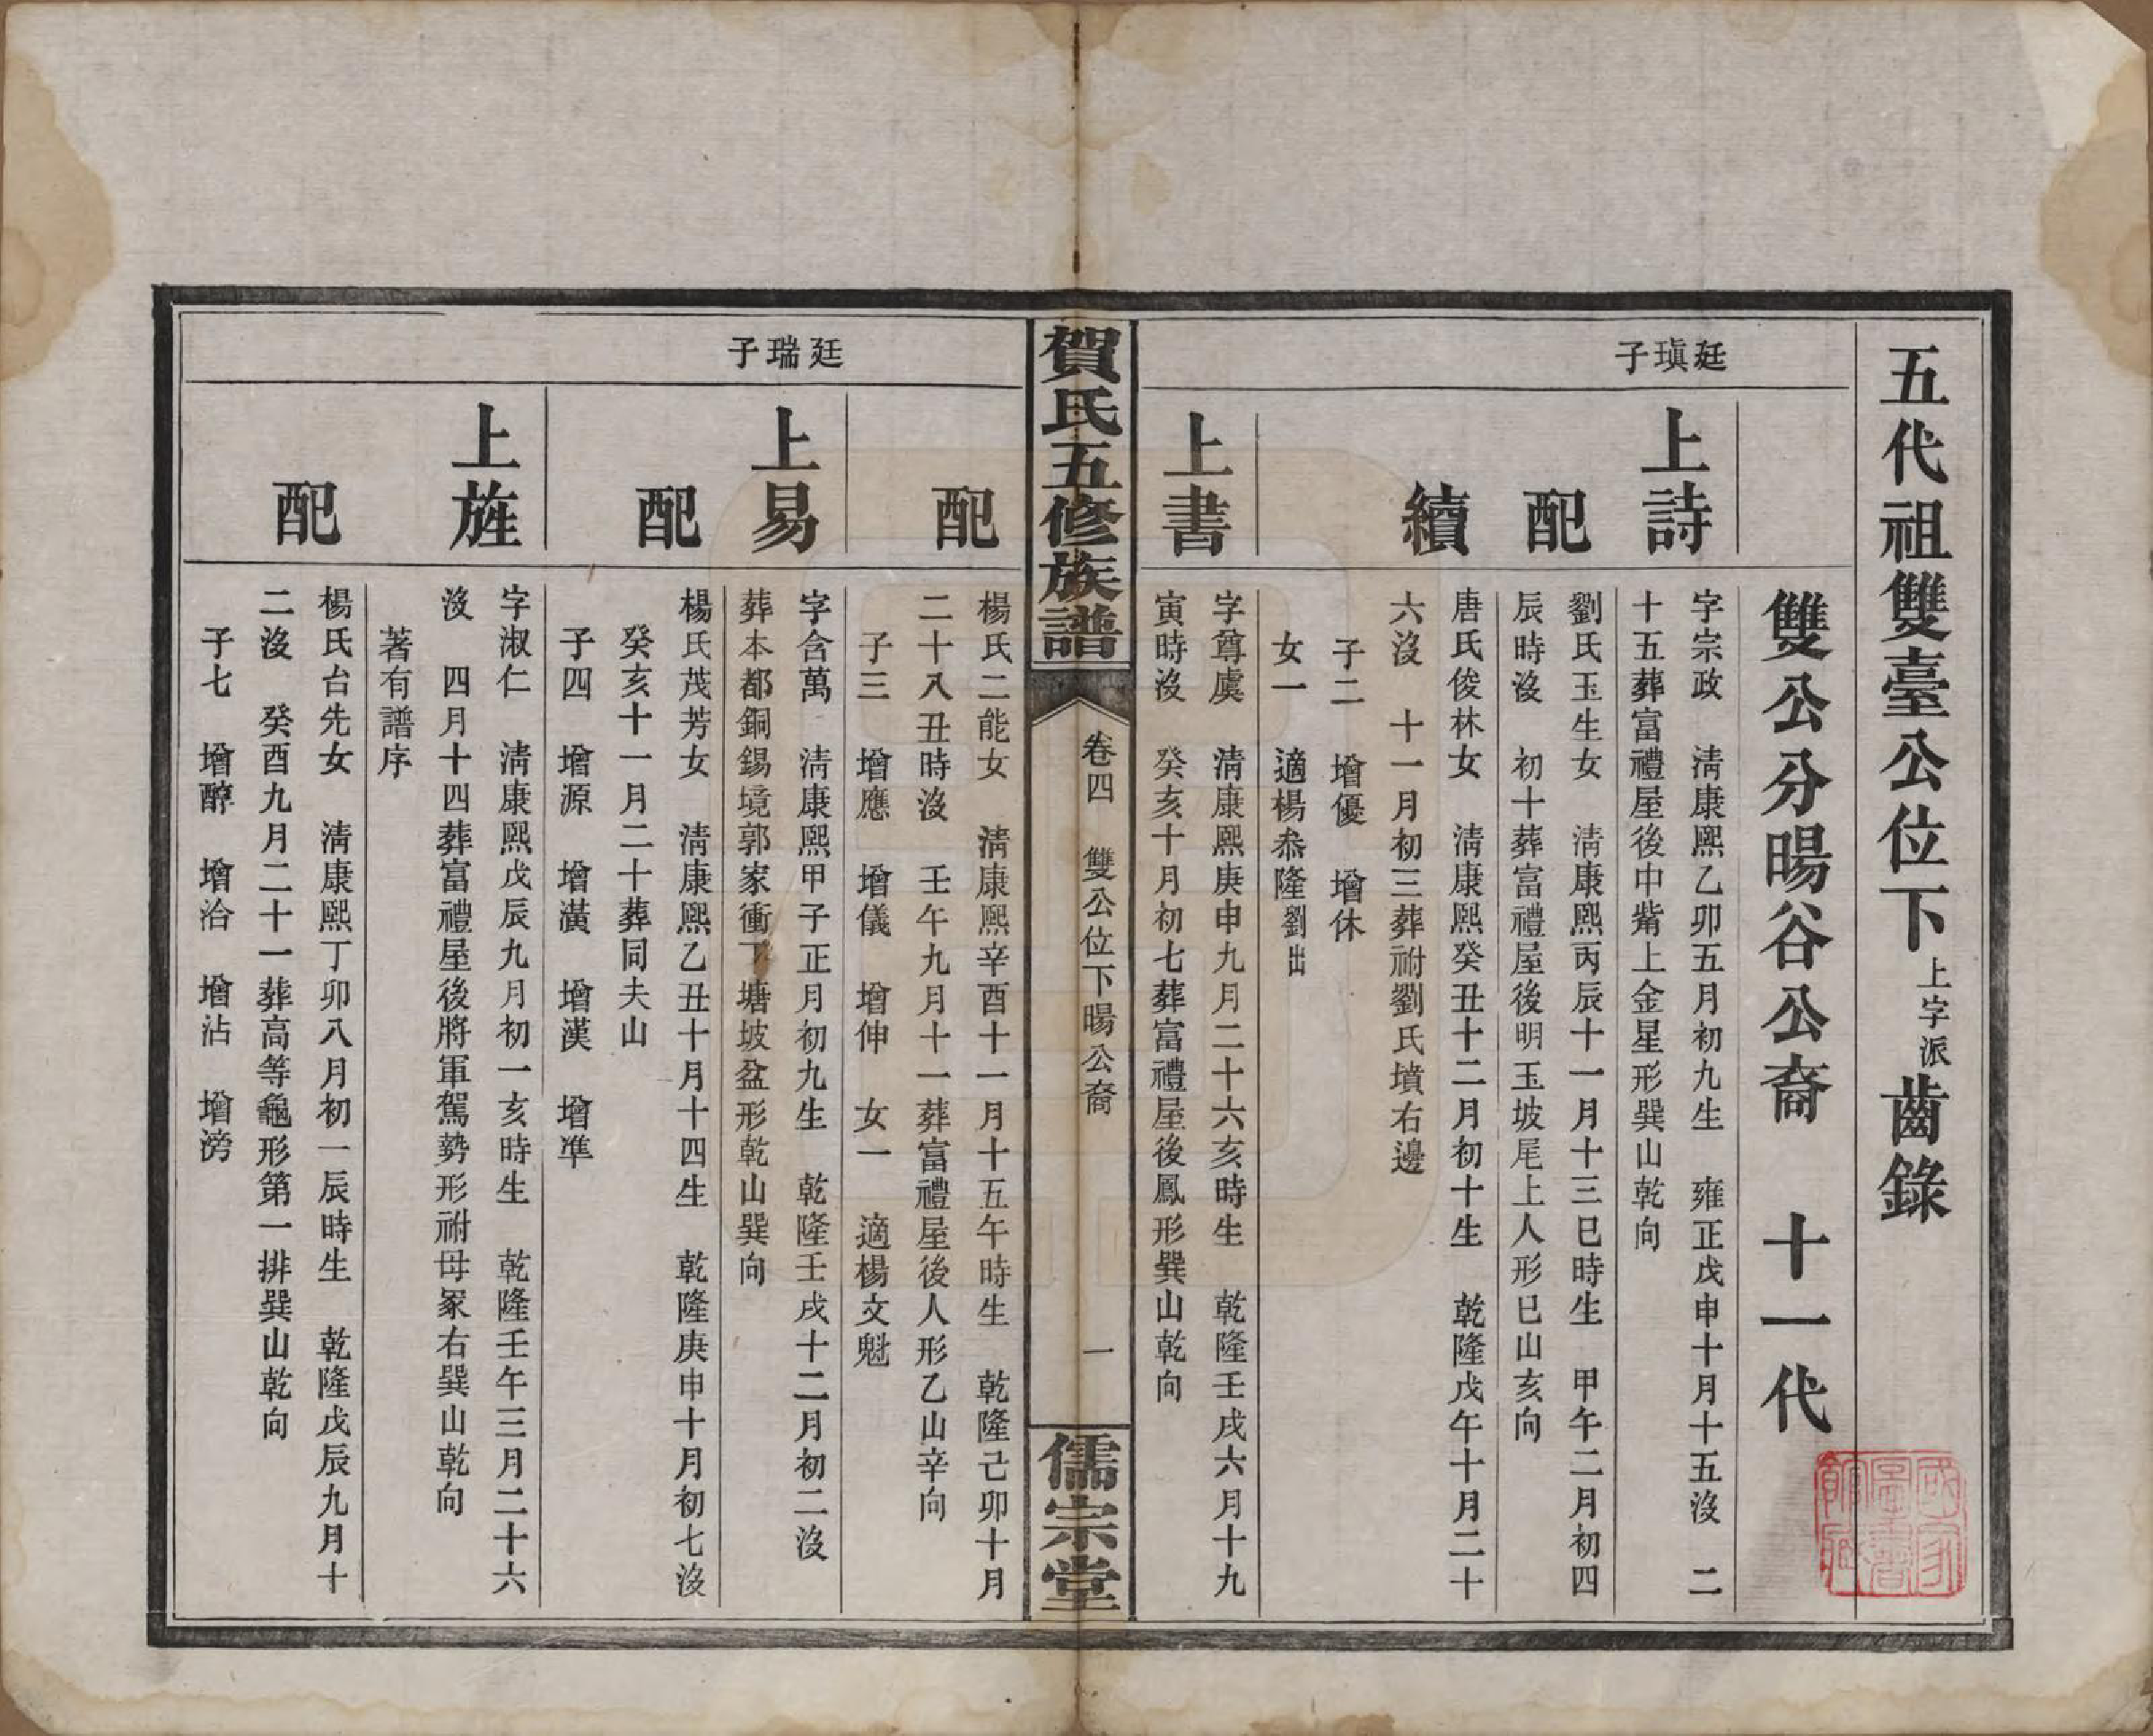 五代祖雙臺公位下上字派齒錄
雙公分暘谷公裔　十一代
廷瑱子
上詩
字宗政　淸康熙乙卯五月初九生　雍正戊申十月十五沒　二
十五葬富禮屋後中觜上金星形巽山乾向
配
劉氏玉生女　淸康熙丙辰十一月十三巳時生　甲午二月初四
辰時沒　初十葬富禮屋後明玉坡尾上人形巳山亥向
續
唐氏俊林女　淸康熙癸丑十二月初十生　乾隆戊午十月二十
六沒　十一月初三葬祔劉氏墳右邊
子二　增優　增休
女一　適楊叅隆劉出
上書
字尊虞　淸康熙庚申九月二十六亥時生　乾隆壬戌六月十九
寅時沒　癸亥十月初七葬富禮屋後鳳形巽山乾向
賀氏五修族譜
卷四　雙公位下暘公裔
一
儒宗堂
配
楊氏二能女　淸康熙辛酉十一月十五午時生　乾隆己卯十月
二十八丑時沒　壬午九月十一葬富禮屋後人形乙山辛向
子三　增應　增儀　增伸　女一　適楊文魁
廷瑞子
上易
字含萬　淸康熙甲子正月初九生　乾隆壬戌十二月初二沒
葬本都銅錫境郭家衝下塘坡盆形乾山巽向
配
楊氏茂芳女　淸康熙乙丑十月十四生　乾隆庚申十月初七沒
癸亥十一月二十葬同夫山
子四　增源　增潢　增漢　增準
上旌
字淑仁　淸康熙戊辰九月初一亥時生　乾隆壬午三月二十六
沒　四月十四葬富禮屋後將軍駕勢形祔母冢右巽山乾向
著有譜序
配
楊氏台先女　淸康熙丁卯八月初一辰時生　乾隆戊辰九月十
二沒　癸酉九月二十一葬高等龜形第一排巽山乾向
子七　增醇　增洽　增沾　增滂